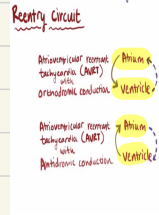 Reentry Circuit
Atrioventricular reentrant
tachycardia (AVRT)
with
orthodromic conduction
Atrium
Ventricle
Atrioventricular reentrant
tachycardia (AVRT)
with
Antidromic conduction
Atrium
Ventricle